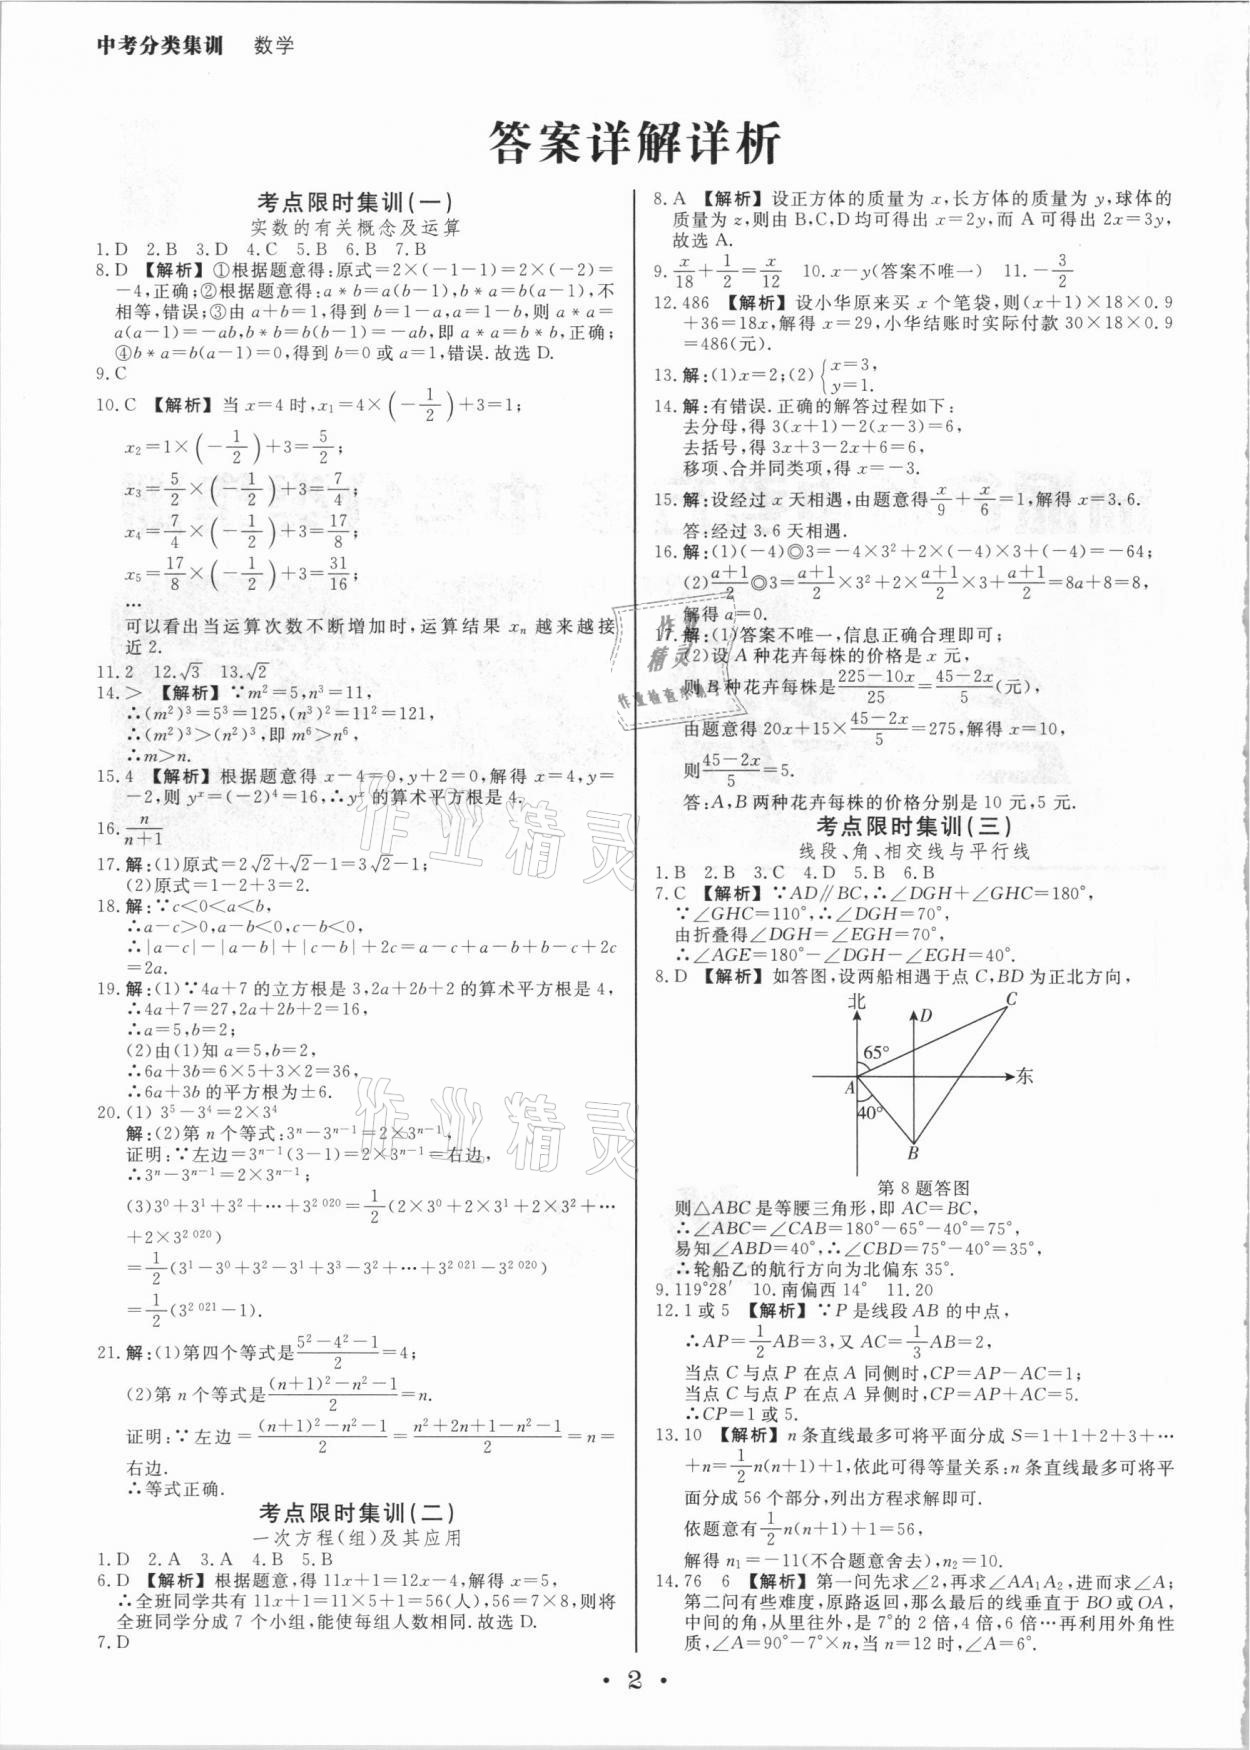 中考分类集训 数学
答案详解详析
考点限时集训(一)
实数的有关概念及运算
1.D 2.B 3.D 4.C 5.B 6.B 7.B
8.D 【解析】①根据题意得:原式=2×(-1-1)=2×(-2)=
-4,正确;②根据题意得:a*b=a(b-1),b*a=b(a-1),不
相等,错误;③由a+b=1,得到b=1-a,a=1-b,则a*a=
a(a-1)=-ab,b*b=b(b-1)=-ab,即a*a=b*b,正确;
④b*a=b(a-1)=0,得到b=0或a=1,错误.故选D.
9.C
10.C 【解析】当x=4时,x₁=4×(-1/2)+3=1;
x₂=1×(-1/2)+3=5/2;
x₃=5/2×(-1/2)+3=7/4;
x₄=7/4×(-1/2)+3=17/8;
x₅=17/8×(-1/2)+3=31/16;
…
可以看出当运算次数不断增加时,运算结果xₙ越来越接
近2.
11.2 12.√3 13.√2
14.> 【解析】∵m²=5,n³=11,
∴(m²)³=5³=125,(n³)²=11²=121,
∴(m²)³>(n²)³,即m⁶>n⁶,
∴m>n.
15.4 【解析】根据题意得x-4=0,y+2=0,解得x=4,y=
-2,则yˣ=(-2)⁴=16,∴yˣ的算术平方根是4.
16.n/(n+1)
17.解:(1)原式=2√2+√2-1=3√2-1;
(2)原式=1-2+3=2.
18.解:∵c<0<a<b,
∴a-c>0,a-b<0,c-b<0,
∴|a-c|-|a-b|+|c-b|+2c=a-c+a-b+b-c+2c
=2a.
19.解:(1)∵4a+7的立方根是3,2a+2b+2的算术平方根是4,
∴4a+7=27,2a+2b+2=16,
∴a=5,b=2;
(2)由(1)知a=5,b=2,
∴6a+3b=6×5+3×2=36,
∴6a+3b的平方根为±6.
20.(1) 3⁵-3⁴=2×3⁴
解:(2)第n个等式:3ⁿ-3ⁿ⁻¹=2×3ⁿ⁻¹,
证明:∵左边=3ⁿ⁻¹(3-1)=2×3ⁿ⁻¹=右边,
∴3ⁿ-3ⁿ⁻¹=2×3ⁿ⁻¹;
(3)3⁰+3¹+3²+…+3²⁰²⁰=1/2(2×3⁰+2×3¹+2×3²+…
+2×3²⁰²⁰)
=1/2(3¹-3⁰+3²-3¹+3³-3²+…+3²⁰²¹-3²⁰²⁰)
=1/2(3²⁰²¹-1).
21.解:(1)第四个等式是(5²-4²-1)/2=4;
(2)第n个等式是((n+1)²-n²-1)/2=n.
证明:∵左边=((n+1)²-n²-1)/2=(n²+2n+1-n²-1)/2=n=
右边.
∴等式正确.
考点限时集训(二)
一次方程(组)及其应用
1.D 2.A 3.A 4.B 5.B
6.D 【解析】根据题意,得11x+1=12x-4,解得x=5,
∴全班同学共有11x+1=11×5+1=56(人),56=7×8,则将
全班同学分成7个小组,能使每组人数相同.故选D.
7.D
8.A 【解析】设正方体的质量为x,长方体的质量为y,球体的
质量为z,则由B,C,D均可得出x=2y,而A可得出2x=3y,
故选A.
9.x/18+1/2=x/12 10.x-y(答案不唯一) 11.-3/2
12.486 【解析】设小华原来买x个笔袋,则(x+1)×18×0.9
+36=18x,解得x=29,小华结账时实际付款30×18×0.9
=486(元).
13.解:(1)x=2;(2){x=3,
y=1.
14.解:有错误.正确的解答过程如下:
去分母,得3(x+1)-2(x-3)=6,
去括号,得3x+3-2x+6=6,
移项、合并同类项,得x=-3.
15.解:设经过x天相遇,由题意得x/9+x/6=1,解得x=3.6.
答:经过3.6天相遇.
16.解:(1)(-4)◎3=-4×3²+2×(-4)×3+(-4)=-64;
(2)(a+1)/2◎3=(a+1)/2×3²+2×(a+1)/2×3+(a+1)/2=8a+8=8,
解得a=0.
17.解:(1)答案不唯一,信息正确合理即可;
(2)设A种花卉每株的价格是x元,
则B种花卉每株是(225-10x)/25=(45-2x)/5(元),
由题意得20x+15×(45-2x)/5=275,解得x=10,
则(45-2x)/5=5.
答:A,B两种花卉每株的价格分别是10元,5元.
考点限时集训(三)
线段、角、相交线与平行线
1.B 2.B 3.C 4.D 5.B 6.B
7.C 【解析】∵AD∥BC,∴∠DGH+∠GHC=180°,
∵∠GHC=110°,∴∠DGH=70°,
由折叠得∠DGH=∠EGH=70°,
∴∠AGE=180°-∠DGH-∠EGH=40°.
8.D 【解析】如答图,设两船相遇于点C,BD为正北方向,
北
D
C
65°
A
东
40°
B
第8题答图
则△ABC是等腰三角形,即AC=BC,
∴∠ABC=∠CAB=180°-65°-40°=75°,
易知∠ABD=40°,∴∠CBD=75°-40°=35°,
∴轮船乙的航行方向为北偏东35°.
9.119°28′ 10.南偏西14° 11.20
12.1或5 【解析】∵P是线段AB的中点,
∴AP=1/2AB=3,又AC=1/3AB=2,
当点C与点P在点A同侧时,CP=AP-AC=1;
当点C与点P在点A异侧时,CP=AP+AC=5.
∴CP=1或5.
13.10 【解析】n条直线最多可将平面分成S=1+1+2+3+…
+n=1/2n(n+1)+1,依此可得等量关系:n条直线最多可将平
面分成56个部分,列出方程求解即可.
依题意有1/2n(n+1)+1=56,
解得n₁=-11(不合题意舍去),n₂=10.
14.76 6 【解析】第一问先求∠2,再求∠AA₁A₂,进而求∠A;
第二问有些难度,原路返回,那么最后的线垂直于BO或OA,
中间的角,从里往外,是7°的2倍,4倍,6倍…再利用外角性
质,∠A=90°-7°×n,当n=12时,∠A=6°.
作业精灵
作业精灵
作业
精灵
· 2 ·